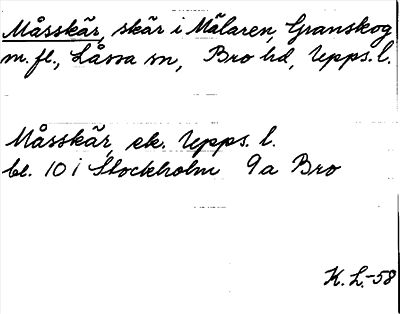 Måsskär, skär i Mälaren, Granskog
m.fl., Låssa sn, Bro hd, Upps. l.
Måsskär, ek. Upps. l.
bl. 10 i Stockholm 9a Bro
K. L.-58